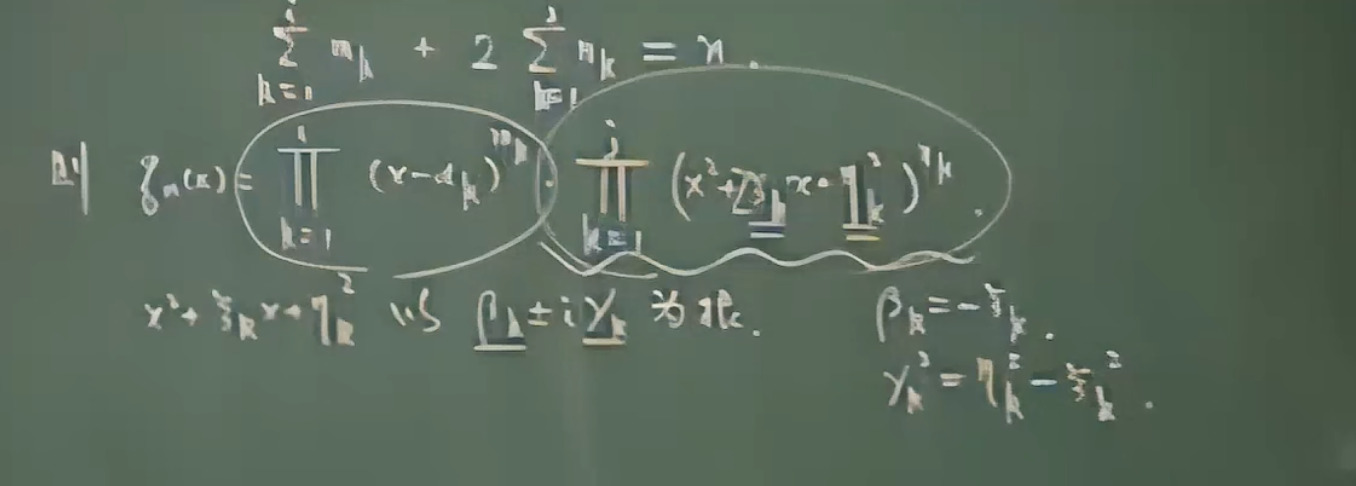 $\sum_{k=1}^{i} m_k + 2 \sum_{k=1}^{j} n_k = n.$
则 $q_n(x) = \prod_{k=1}^{i} (x-\alpha_k)^{m_k} \cdot \prod_{k=1}^{j} (x^2+2\xi_k x+\eta_k^2)^{n_k}.$
$x^2+\xi_k x+\eta_k^2$ 以 $\beta_k \pm i\gamma_k$ 为根. $\beta_k = -\xi_k.$
$\gamma_k^2 = \eta_k^2 - \xi_k^2.$